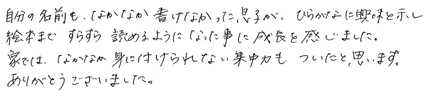 自分の名前も、なかなか書けなかった息子が、ひらがなに興味を示し
絵本まですらすら読めるようになった事に成長を感じました。
家では、なかなか身に付けられない集中力もついたと思います。
ありがとうございました。